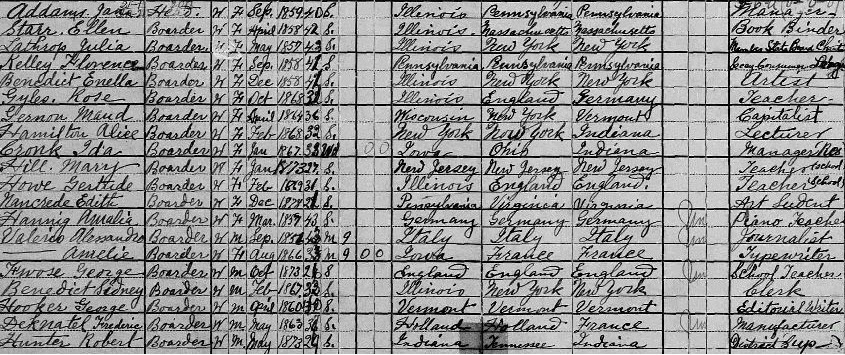 Addams, Jane Head W F Sep. 1859 40 S. Illinois Pennsylvania Pennsylvania Manager
Starr Ellen Boarder W F April 1858 42 S. Illinois Massachusetts Massachusetts Book Binder
Lathrop Julia Boarder W F May 1857 43 S. Illinois New York New York Member State Board
Kelley Florence Boarder W F Sep. 1858 41 S. Pennsylvania Pennsylvania Pennsylvania
Benedict Enella Boarder W F Dec 1858 41 S. Illinois New York New York Artist
Gyles Rose Boarder W F Oct 1868 S. Illinois England Germany Teacher
Vernon Maud Boarder W F April 1864 36 S. Wisconsin New York Vermont Capitalist
Hamilton Alice Boarder W F Feb 1868 32 S. New York New York Indiana Lecturer
Cronk Ida Boarder W F Jan 1867 33 Wd 0 0 Iowa Ohio Indiana Manager
Hill Mary Boarder W F Jan 1873 27 S. New Jersey New Jersey New Jersey Teacher (school)
Howe Gertrude Boarder W F Feb 1869 31 S. Illinois England England. Teacher (School)
Nancrede Edith Boarder W F Dec S. Pennsylvania Virginia Virginia Art Student
Hannig Amalie Boarder W F Mar. 1857 43 S. Germany Germany Germany Un Piano Teacher
Valerio Alessandro Boarder W m Sep. m 9 Italy Italy Italy Un Journalist
—— Amelie Boarder W F Aug 1866 33 m 9 0 0 Iowa France France Typewriter
Twose George Boarder W m Oct 1873 26 S. England England England Un School Teacher
Benedict Sidney Boarder W m Feb 1867 33 S. Illinois New York New York Clerk
Hooker George Boarder W m April 1860 S. Vermont Vermont Vermont Editorial Writer
Deknatel Frederic Boarder W m May 1863 S. Holland Holland France Un Manufacturer
Hunter Robert Boarder W m May 1873 S. Indiana Tennessee Indiana District Sup